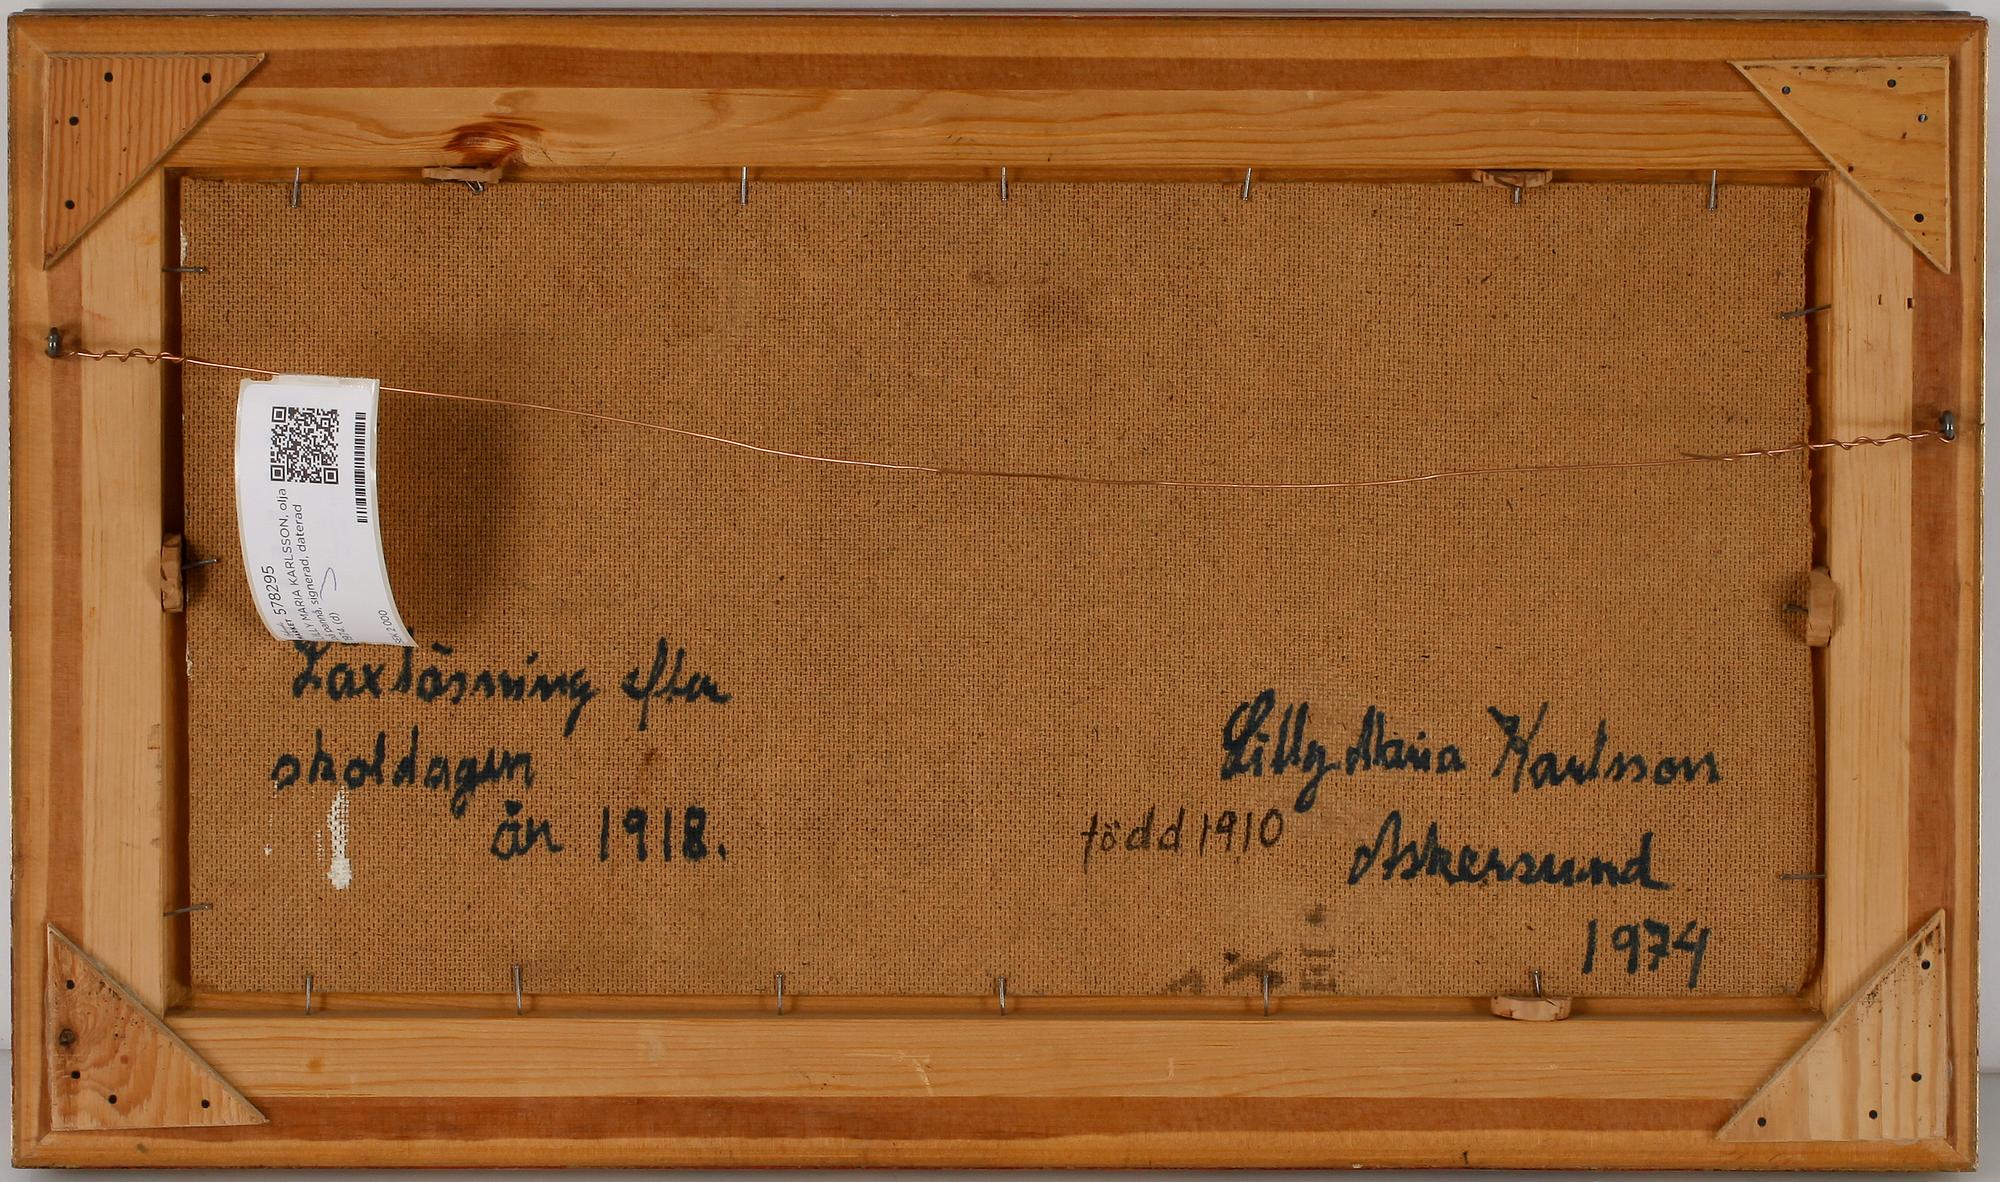 578295
MARIA KARLSSON, olja
signerad, daterad
SEK 2 000
Laxläsning efter
skoldagen
år 1918.
Lilly Maria Karlsson
född 1910
Askersund
1974